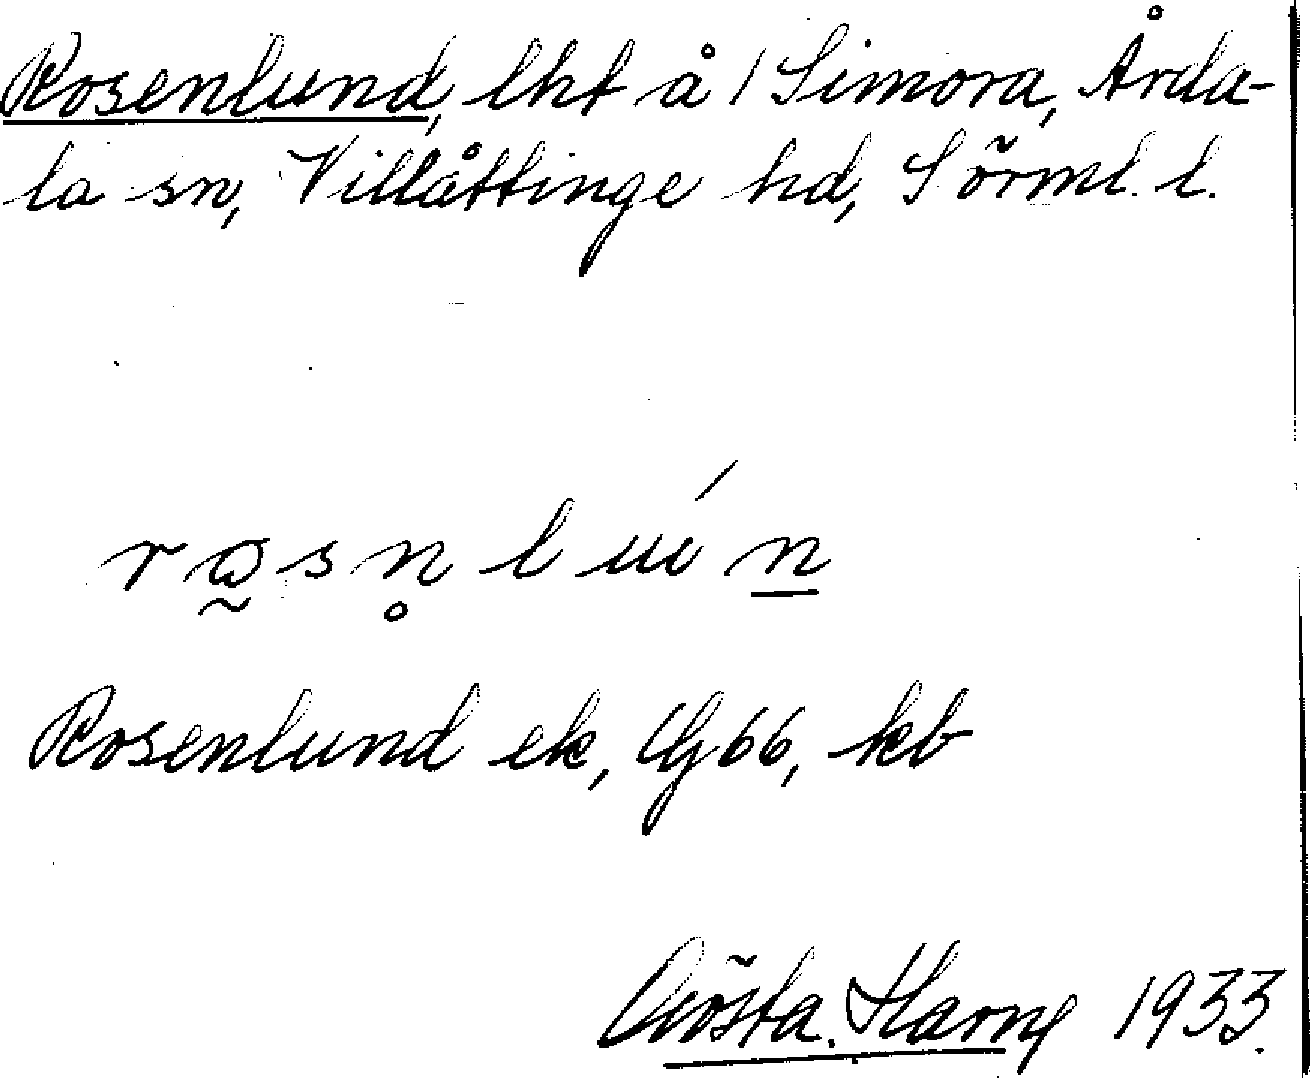 Rosenlund, lht å 1 Simora, Årda-
la sn, Villåttinge hd, Sörml. l.
rɷ̰sn̥ luń n
Rosenlund ek, Gj 66, kb
Gösta. Harny 1933.